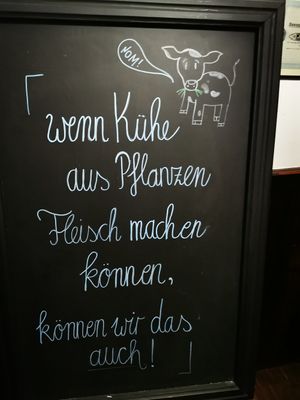 NOM!
「wenn Kühe
aus Pflanzen
Fleisch machen
können,
können wir das
auch!」